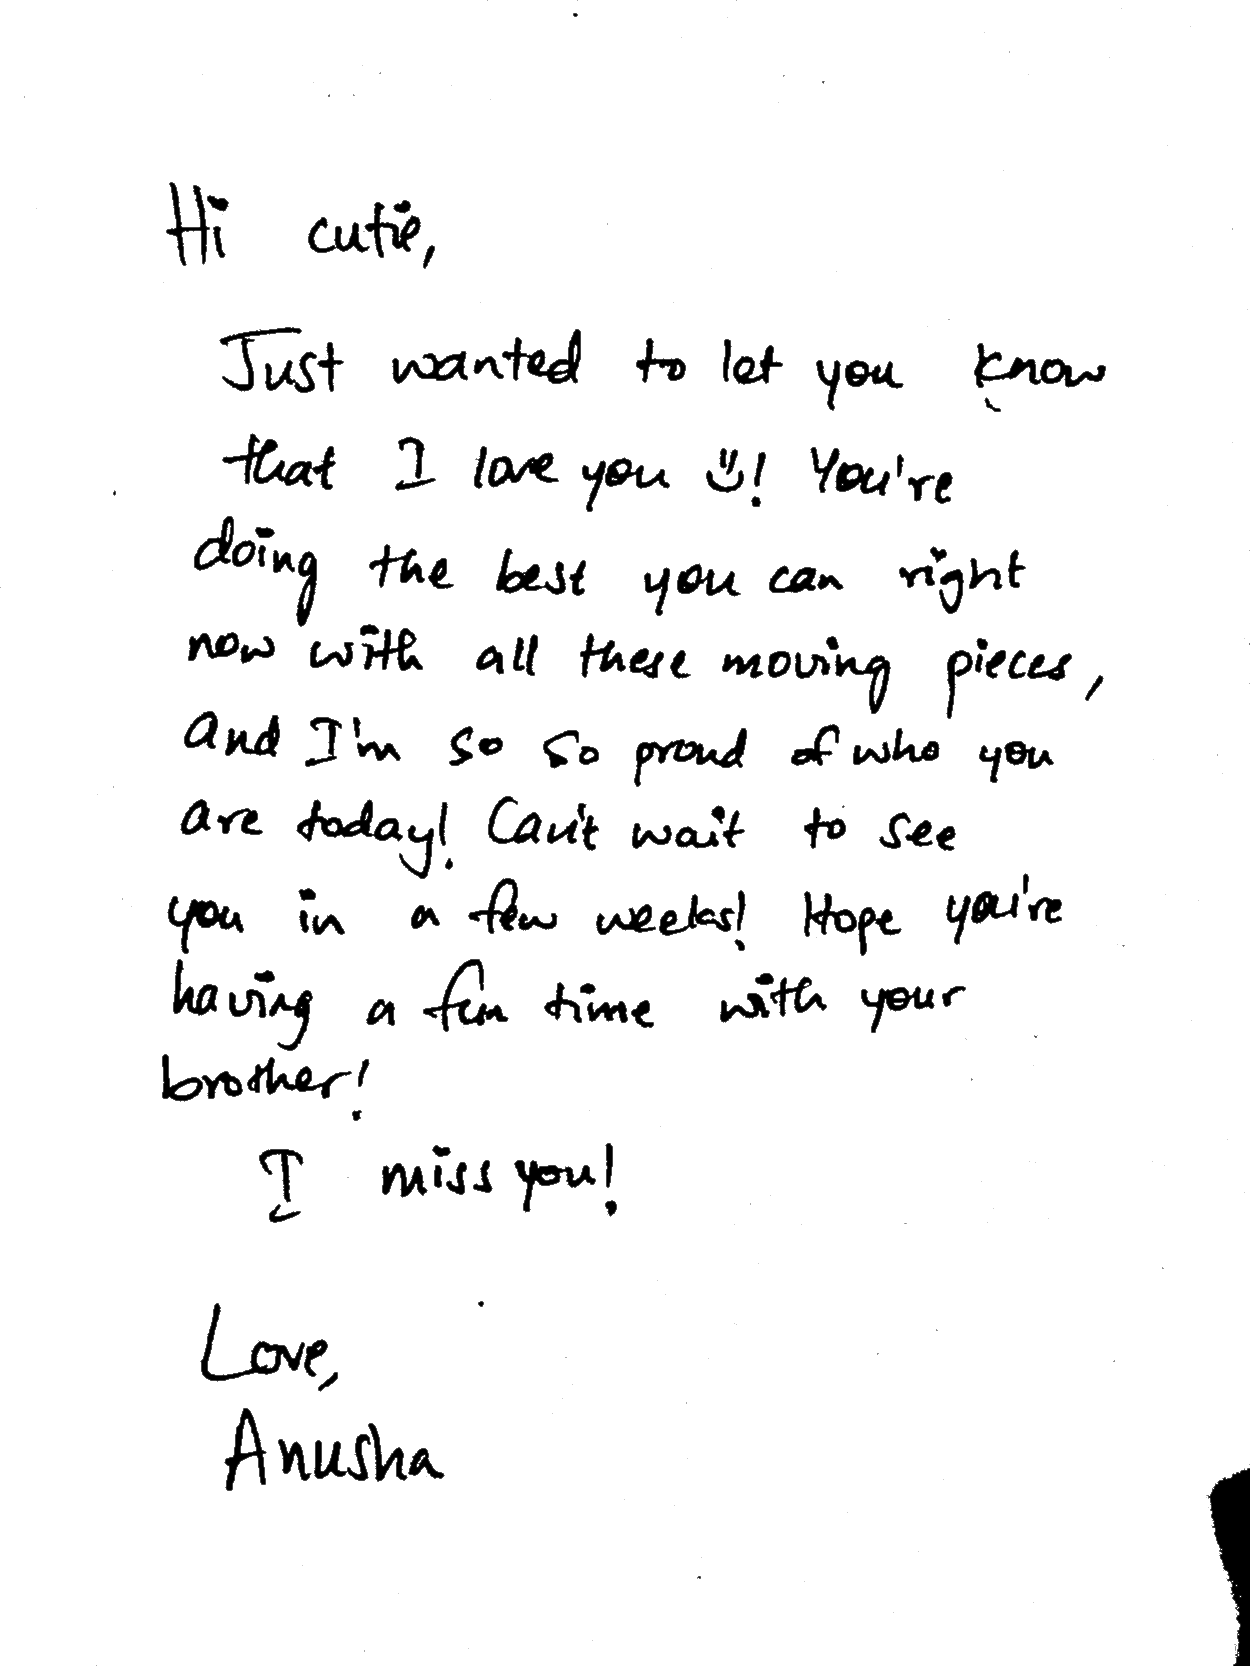 Hi cutie,
Just wanted to let you know
that I love you :)! You're
doing the best you can right
now with all these moving pieces,
and I'm so so proud of who you
are today! Can't wait to see
you in a few weeks! Hope you're
having a fun time with your
brother!
I miss you!
Love,
Anusha